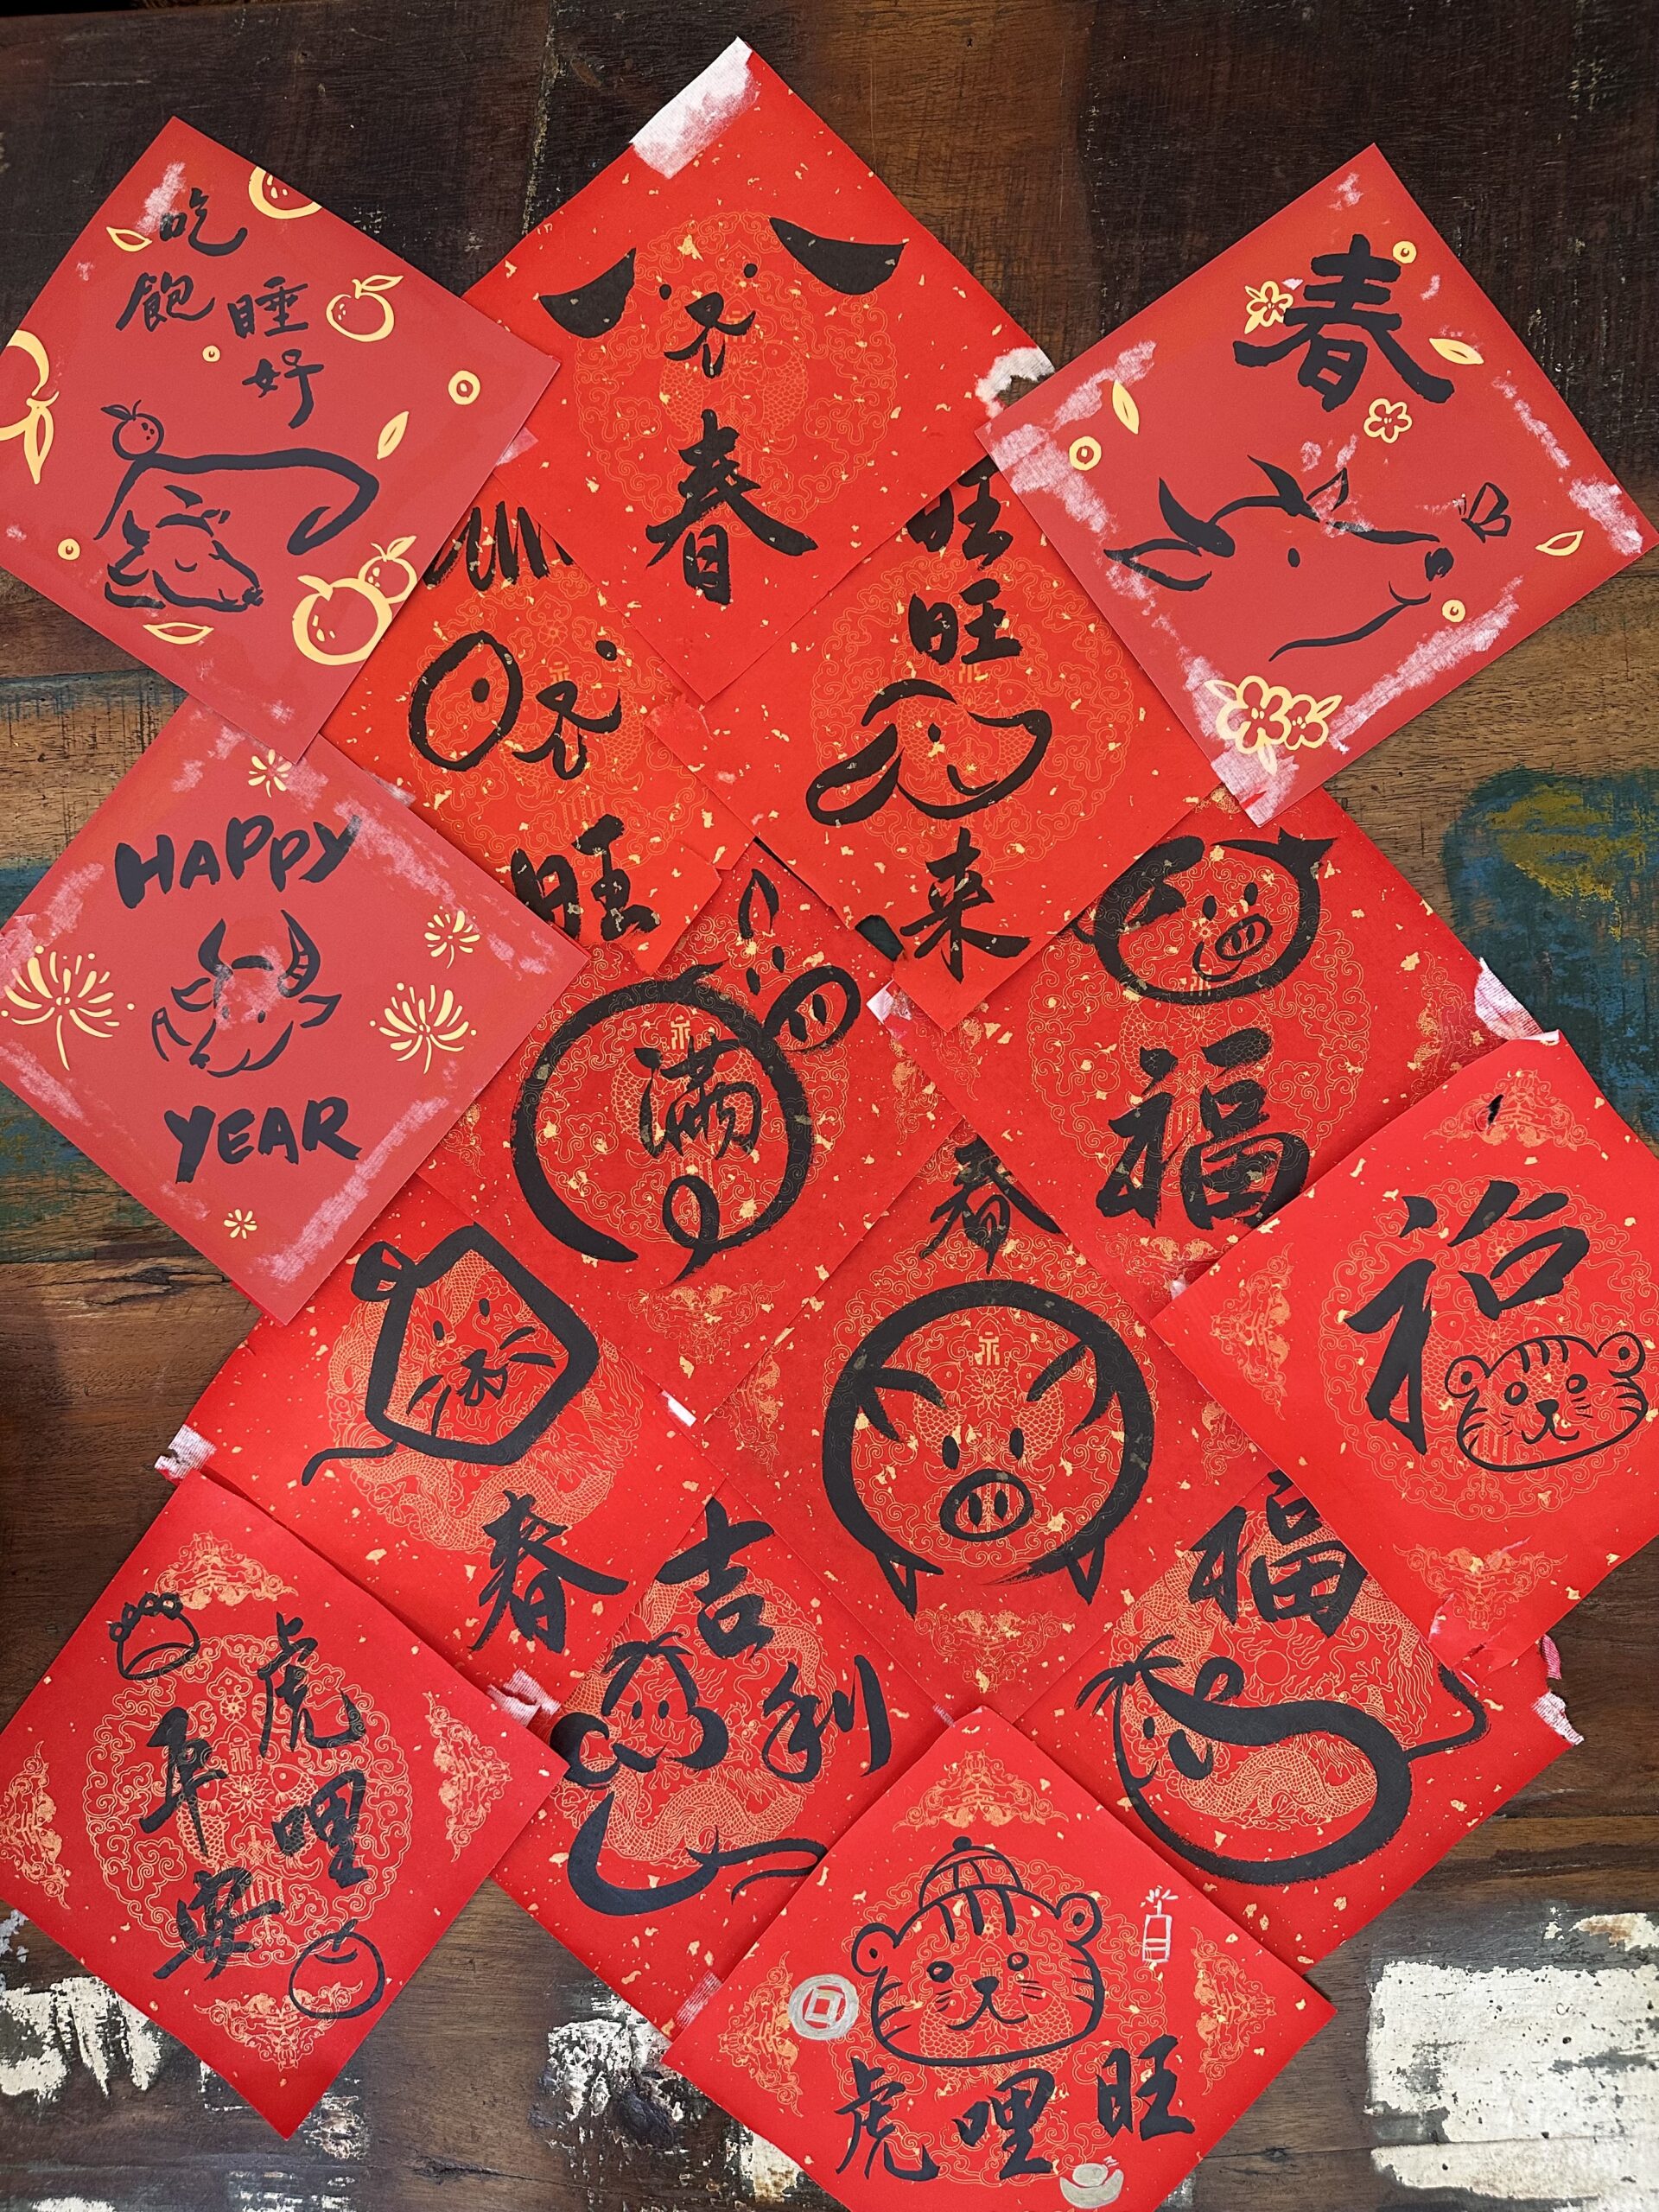 吃飽
睡好
春
春
旺
旺
來
旺
HAPPY
YEAR
滿
福
春
春
吉利
福
虎哩
平安
虎哩旺